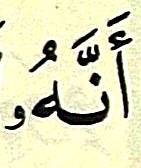 أَنَّهُۥ